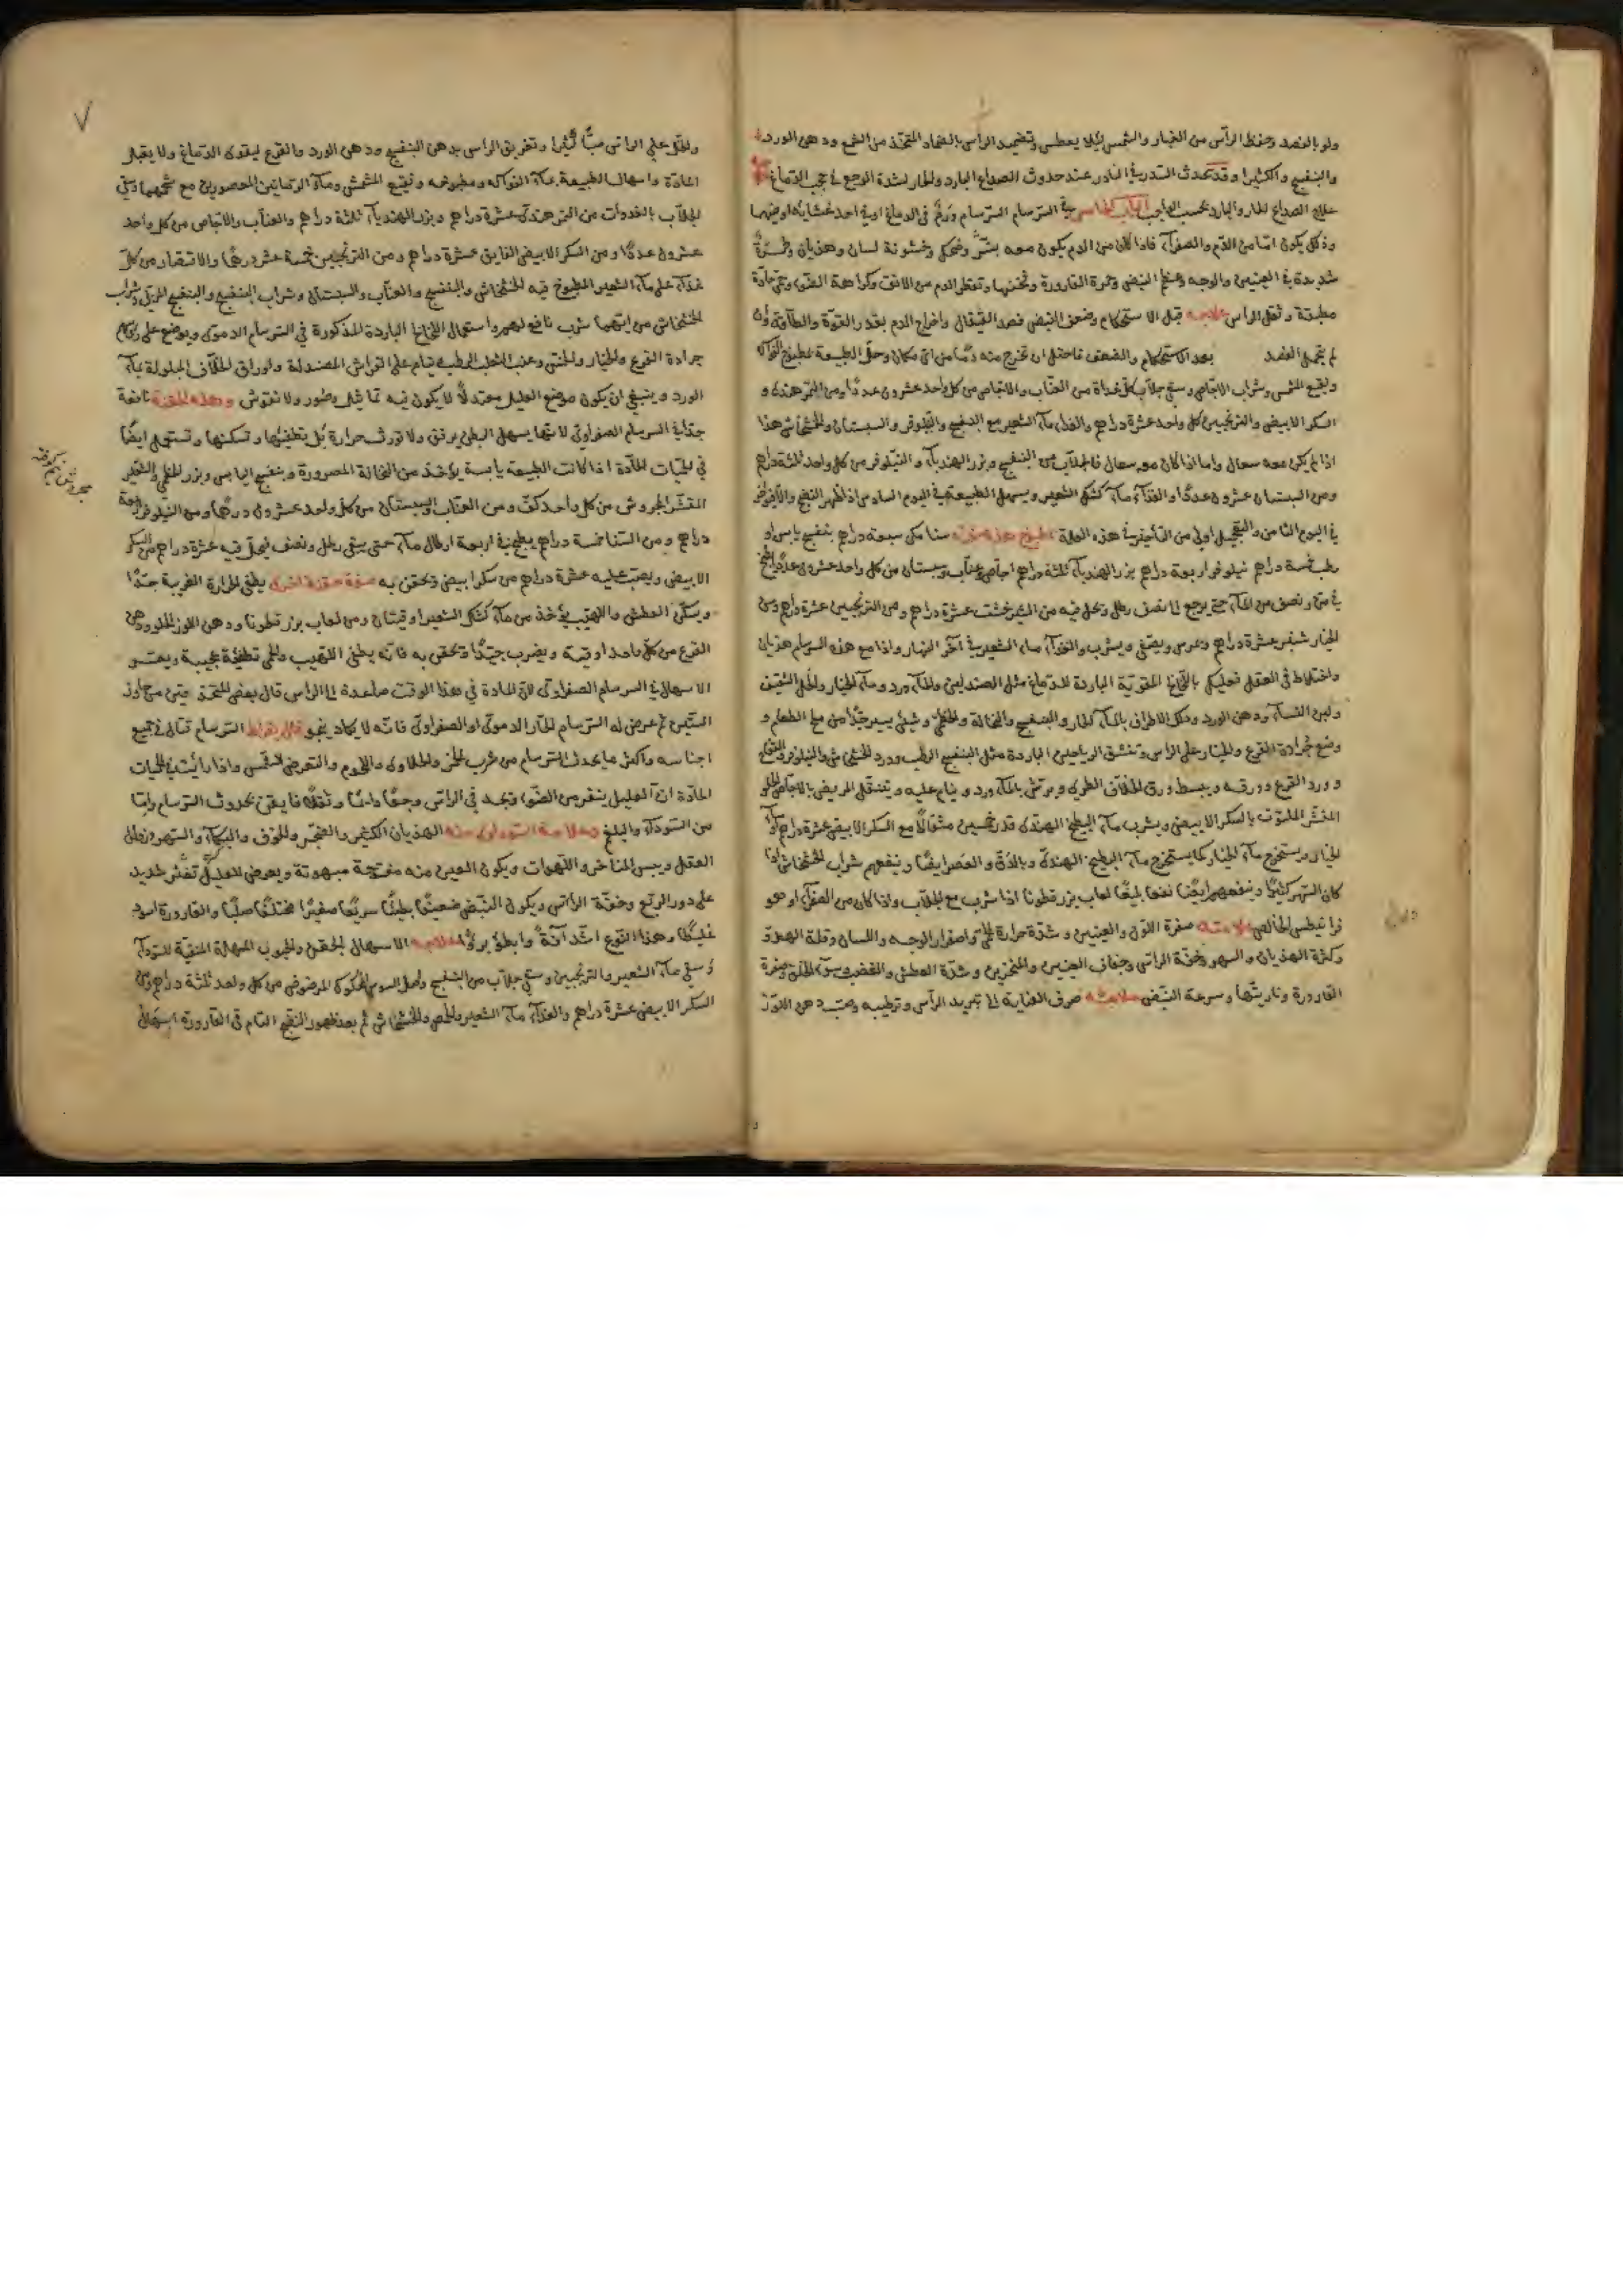 ولو بالعصد وحفظ الرأس من الغبار والشمس لئلا يعطس وتضميد الرأس بالضماد المتخذ من الشمع ودهن الورد
والبنفسج والكثيرا وقد تحدث السدر في النادر عند حدوث الصداع البارد والحار لشدة الوجع في حجب الدماغ
علاج الصداع الحار والبارد بحسب الواجب الباب الخامس في السرسام السرسام ورم في الدماغ او في احد غشائيه او فيهما
وذلك يكون اما من الدم والصفراء فاذا كان من الدم يكون معه وضحك وخشونة لسان وهذيان وحمرة
شديدة في العينين والوجه وعظم النبض وحمرة القارورة وثخنها وتقطر الدم من الانف وكراهة الضوء وحمى حادة
مطبقة وثقل الراس علاجه قبل الاستحكام وضعف النبض فصد القيفال واخراج الدم بقدر القوة والطاقة وان
لم يتحمل الفصد بعد الاستحكام والضعف فاحتمل ان تخرج منه دما من اي مكان وحل الطبيعة بمطبوخ الفواكه
ونقيع المشمش وشراب الاجاص وسقي جلاب كل غداة من العناب والاجاص من كل واحد عشرون عددا ومن التمر هندى و
السكر الابيض والترنجبين كل واحد عشرة دراهم والغذاء ماء الشعير مع البنفسج والنيلوفر والسبستان والخشخاش هذا
اذا لم يكن معه سعال واما اذا كان معه سعال فالجلاب من البنفسج وبزر الهندباء والنيلوفر من كل واحد ثلثة دراهم
ومن السبستان عشرون عددا والغذاء ماء كشك الشعير ويسهل الطبيعة في اليوم السادس اذا ظهر النضج والا
في اليوم الثامن والتعجيل اولى من التأخير في هذه العلة مطبوخ هذه صفته سنا مكى سبعة دراهم بنفسج يابس او
رطب خمسة دراهم نيلوفر اربعة دراهم بزر الهندباء ثلثة دراهم اجاص وعناب وسبستان من كل واحد عشرون عددا يطبخ
في من ونصف من الماء حتى يرجع الى نصف رطل وتحل فيه من الشيرخشت عشرة دراهم ومن الترنجبين عشرة دراهم ومن
الخيار شنبر عشرة دراهم ويمرس ويصفى ويشرب والغذاء ماء الشعير في آخر النهار واذا مع هذه السرسام هذيان
واختلاط في العقل فعليك بالمقوية الباردة للدماغ مثل الصندلين والماء ورد وماء الخيار والخل الثقيف
ولبن النساء ودهن الورد ودلك الاطراف بالماء الحار والبنفسج والنخالة والخطمى وشيئ يسير جدا من ملح الطعام و
وضع جرادة القرع والخيار على الراس وتنشق الرياحين الباردة مثل البنفسج الرطب وورد الخشخاش والنيلوفر
وورد القرع وورقه ويبسط ورق الخلاف الطرى ويرش بالماء ورد وينام عليه ويتنقل المريض بالاجاص الحلو
المقشر الملتوت بالسكر الابيض ويشرب ماء البطيخ الهندى قدر خمسين مثقالا مع السكر الابيض عشرة دراهم وماء
الخيار ويستخرج ماء الخيار كما يستخرج ماء البطيخ الهندى وبالدق والعصر ايضا وينفعهم شراب الخشخاش اذا
كان السهر كثيرا وينفعهم ايضا نفعا بليغا لعاب بزر قطونا اذا شرب مع الجلاب واذا كان من الصفراء وهو
قرانيطس الخالص علامته صفرة اللون والعينين وشدة حرارة الحمى واصفرار الوجه واللسان وقلة الهدو
وكثرة الهذيان والسهر وخفة الراس وجفاف العينين والمنخرين وشدة العطش والغضب وسوء الخلق وصفرة
القارورة وناريتها وسرعة النبض علاجه صرف العناية الى تبريد الرأس وترطيبه وصب دهن اللوز
والخل على الراس صبا كثيرا وتغريق الراس بدهن البنفسج ودهن الورد والقرع ليقوى الدماغ ولا يقبل
المادة واسهال الطبيعة بماء الفواكه ومطبوخه ونقيع المشمش وماء الرمانين المعصورين مع شحمهما وسقي
الجلاب بالغدوات من التمر هندى عشرة دراهم وبزر الهندباء ثلثة دراهم والعناب والاجاص من كل واحد
عشرون عددا ومن السكر الابيض الفايق عشرة دراهم ومن الترنجبين خمسة عشر درهما والاقتصار من كل
غذاء على ماء الشعير المطبوخ فيه الخشخاش والبنفسج والعناب والسبستان وشراب البنفسج والبنفسج المربى وشراب
الخشخاش من ايتهما شرب نافع لهم واستعمال الباردة المذكورة في السرسام الدموى ويوضع على رؤسهم
جرادة القرع والخيار والخس وعنب الثعلب الرطب وينام على الفراش المصندلة واوراق الخلاف المبلولة بماء
الورد وينبغي ان يكون موضع العليل معتدلا لا يكون فيه تماثيل وصور ولا نقوش وهذه الحقنة نافعة
جدا في السرسام الصفراوى لانها يسهل البطن برفق ولا تورث حرارة بل يطفيها وتسكنها وتستعمل ايضا
في الحميات الحادة اذا كانت الطبيعة يابسة يؤخذ من النخالة المصرورة وبنفسج اليابس وبزر الخطمى والشعير
المقشر المجروش من كل واحد كف ومن العناب والسبستان من كل واحد عشرون درهما ومن النيلوفر اربعة
دراهم ومن السنا خمسة دراهم يطبخ في اربعة ارطال ماء حتى يبقى رطل ونصف فيحل فيه عشرة دراهم من السكر
الابيض ويصب عليه عشرة دراهم من سكر ابيض وتحقن به صفة حقنة اخرى يطفي الحرارة الغريبة جدا
ويسكن العطش واللهيب يؤخذ من ماء كشك الشعير اوقيتان ومن لعاب بزر قطونا ودهن اللوز الحلو ودهن
القرع من كل واحد اوقية ويضرب جيدا وتحقن به فانه يطفئ اللهيب والحمى تطفئة عجيبة ويعسر
الاسهال في السرسام الصفراوى لان المادة في هذا الوقت صاعدة الى الراس قال بعض متى جاوز
الستين ثم عرض له السرسام الحار الدموى او الصفراوى فانه لا يكاد ينجو قال بقراط السرسام قتال في جميع
اجناسه واكثر ما يحدث السرسام من شرب الخمر والحلاوى واللحوم والتعرض للشمس واذا رأيت في الحميات
الحادة ان العليل ينفر من الضوء وتجد في الراس وجعا دائما وثقلا فايقن بحدوث السرسام واما
من السوداء والبلغم فعلامة السوداوى منه الهذيان الكثير والضجر والخوف والبكاء والسهر وبطلان
العقل ويبس المناخر واللهوات ويكون العين منه مفتوحة مبهوتة ويعرض للعليل تغير شديد
على دور الربع وخفة الرأس ويكون النبض ضعيفا بطيئا سريعا صغيرا مختلفا صلبا والقارورة اسود
غليظا وهذا النوع اشد آفة وابطؤ برؤا علاجه الاسهال بالحقن والحبوب المسهلة المنقية للسوداء
وسقي ماء الشعير والترنجبين وسقي جلاب من البنفسج واصل السوس المحكوك المرضوض من كل واحد ثلثة دراهم ومن
السكر الابيض عشرة دراهم والغذاء ماء الشعير والحمص والخشخاش ثم بعد ظهور النضج التام في القارورة اسهال